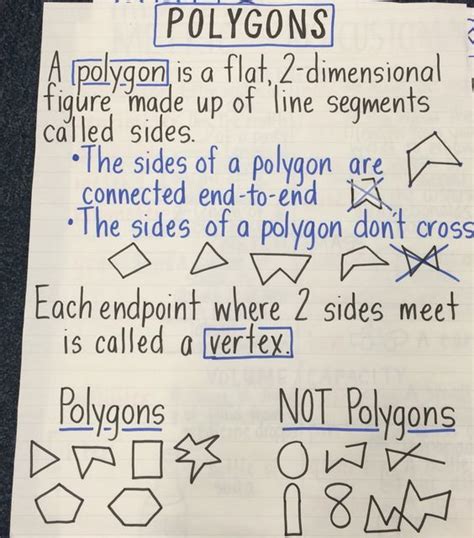 POLYGONS
A polygon is a flat, 2-dimensional
figure made up of line segments
called sides.
• The sides of a polygon are
connected end-to-end
• The sides of a polygon don't cross
Each endpoint where 2 sides meet
is called a vertex.
Polygons
NOT Polygons